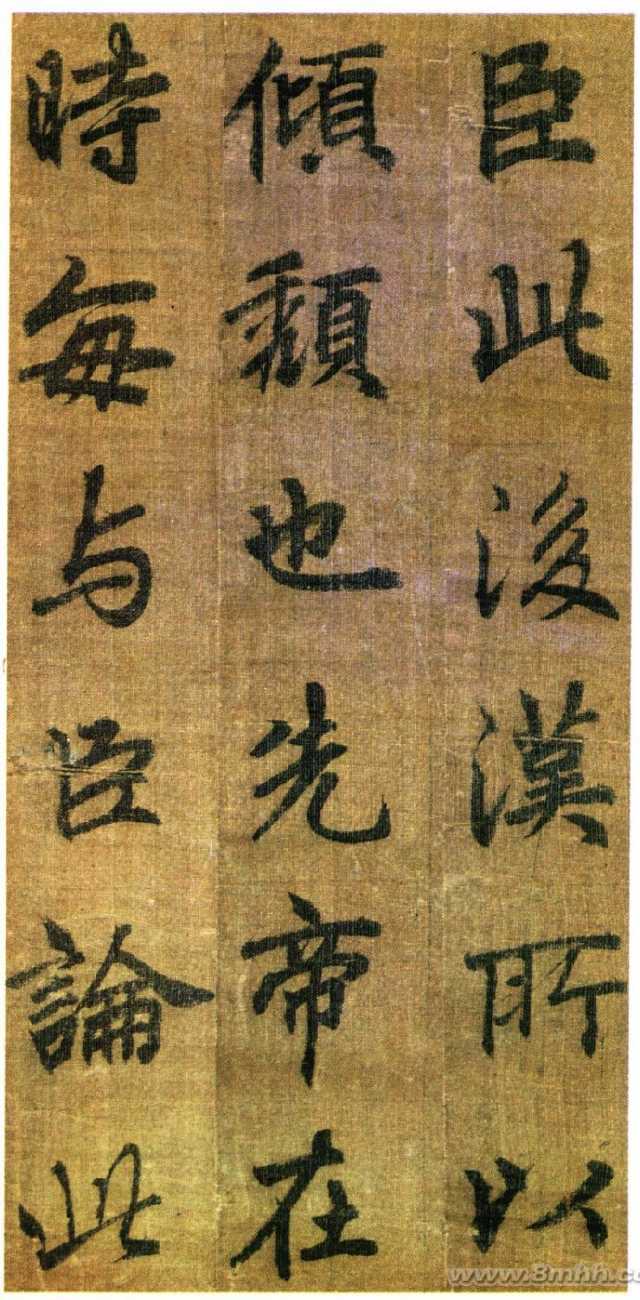 臣此後漢所以
傾頹也先帝在
時每与臣論此
www.8mhh.co